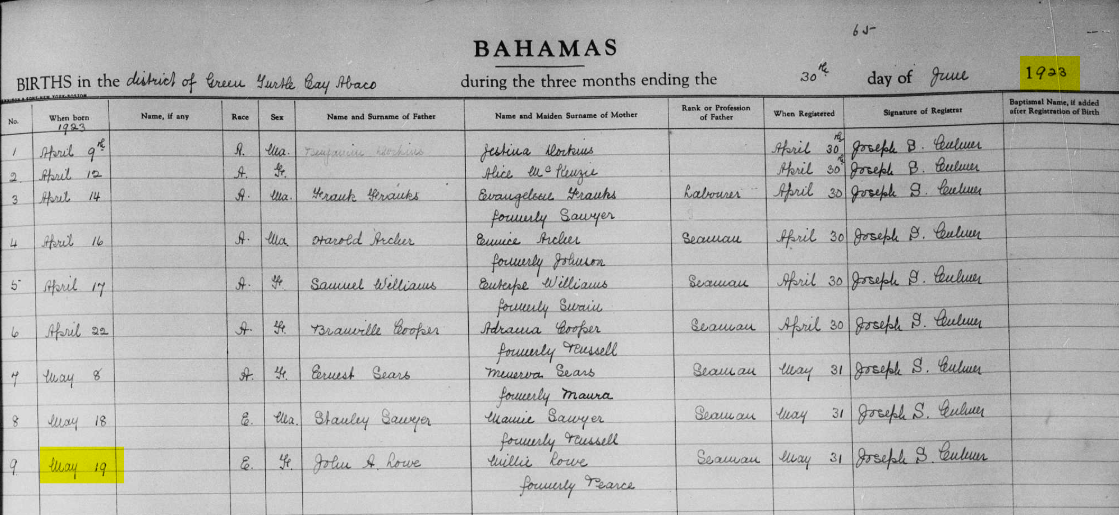 65-
BAHAMAS
BIRTHS in the district of Green Turtle Cay Abaco during the three months ending the 30th day of June 1923
No. When born Name, if any Race Sex Name and Surname of Father Name and Maiden Surname of Mother Rank or Profession of Father When Registered Signature of Registrar Baptismal Name, if added after Registration of Birth
1923
1 April 9th A. Ma. Benjamin Dorkins Jestina Dorkins April 30th Joseph S. Culmer
2 April 12 A. F. Alice McKenzie April 30th Joseph S. Culmer
3 April 14 A. Ma. Frank Franks Evangeline Franks Labourer April 30 Joseph S. Culmer
formerly Sawyer
4 April 16 A. Ma Harold Archer Eunice Archer Seaman April 30 Joseph S. Culmer
formerly Johnson
5 April 17 A. F. Samuel Williams Euterpe Williams Seaman April 30 Joseph S. Culmer
formerly Swain
6 April 22 A. F. Branville Cooper Cooper Seaman April 30 Joseph S. Culmer
formerly Russell
7 May 8 A. F. Ernest Sears Menerva Sears Seaman May 31 Joseph S. Culmer
formerly Maura
8 May 18 E. Ma. Stanley Sawyer Mamie Sawyer Seaman May 31 Joseph S. Culmer
formerly Russell
9 May 19 E. F. John A. Lowe Millie Lowe Seaman May 31 Joseph S. Culmer
formerly Pearce